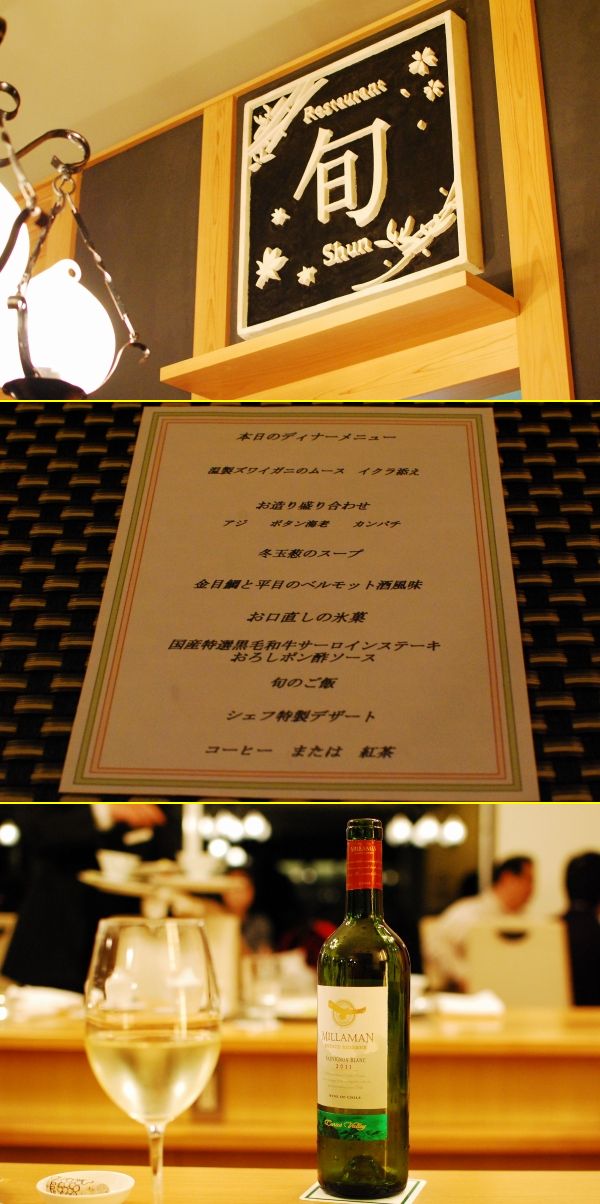 Restaurant
旬
Shun
本日のディナーメニュー
温製ズワイガニのムース　イクラ添え
お造り盛り合わせ
アジ　ボタン海老　カンパチ
冬玉葱のスープ
金目鯛と平目のベルモット酒風味
お口直しの氷菓
国産特選黒毛和牛サーロインステーキ
おろしポン酢ソース
旬のご飯
シェフ特製デザート
コーヒー　または　紅茶
MILLAMAN
MILLAMAN
ESTATE RESERVE
SAUVIGNON BLANC
2011
WINE OF CHILE
Valley